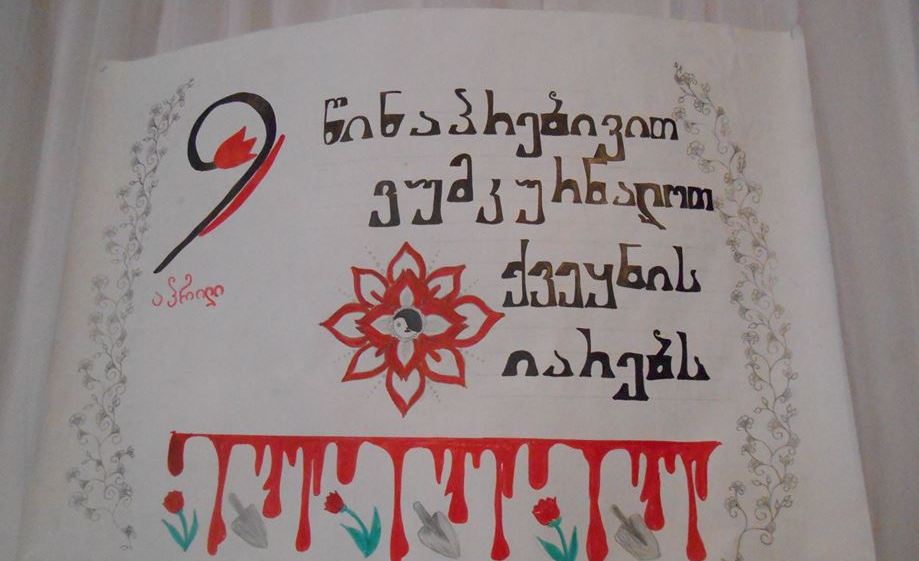 9
აპრილი
წინაპრებივით
ვუმკურნალოთ
ქვეყნის
იარებს